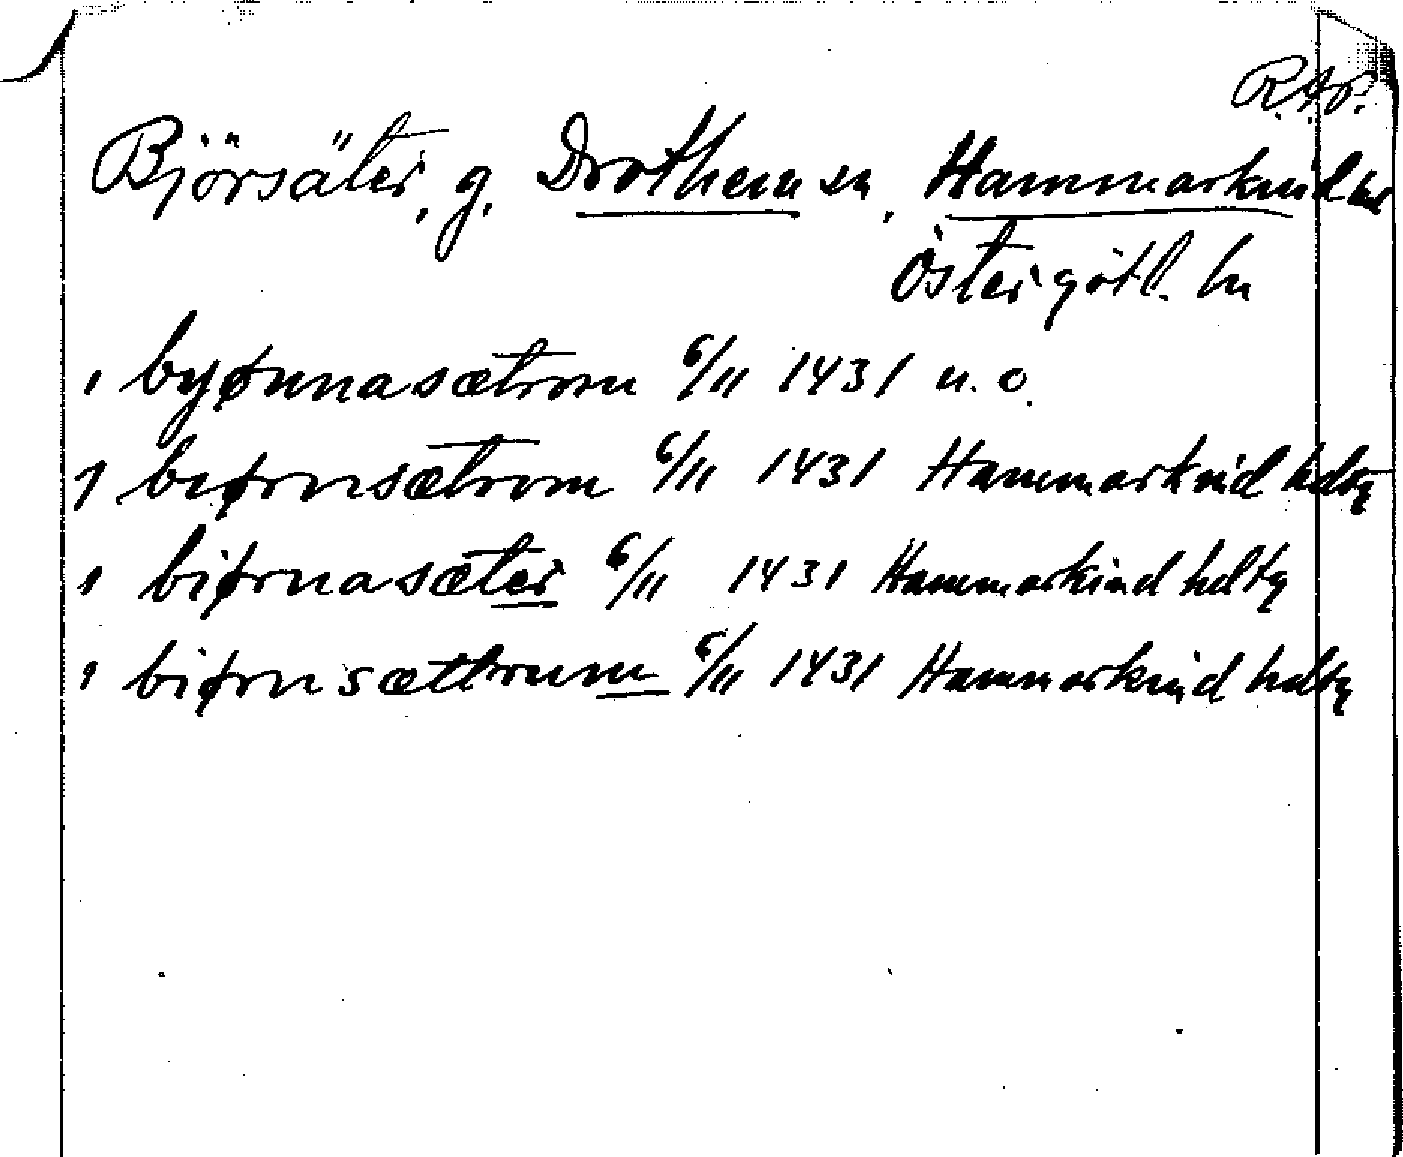 R.A.P.
Björsäter, g. Drothem sn, Hammarkind hd
Östergötl. ln
i byønnasætrom 6/11 1431 u.o.
i biørnsætrom 6/11 1431 Hammarkind hdtg
i biørnasæter 6/11 1431 Hammarkind hdtg
i biørnsættrum 6/11 1431 Hammarkind hdtg